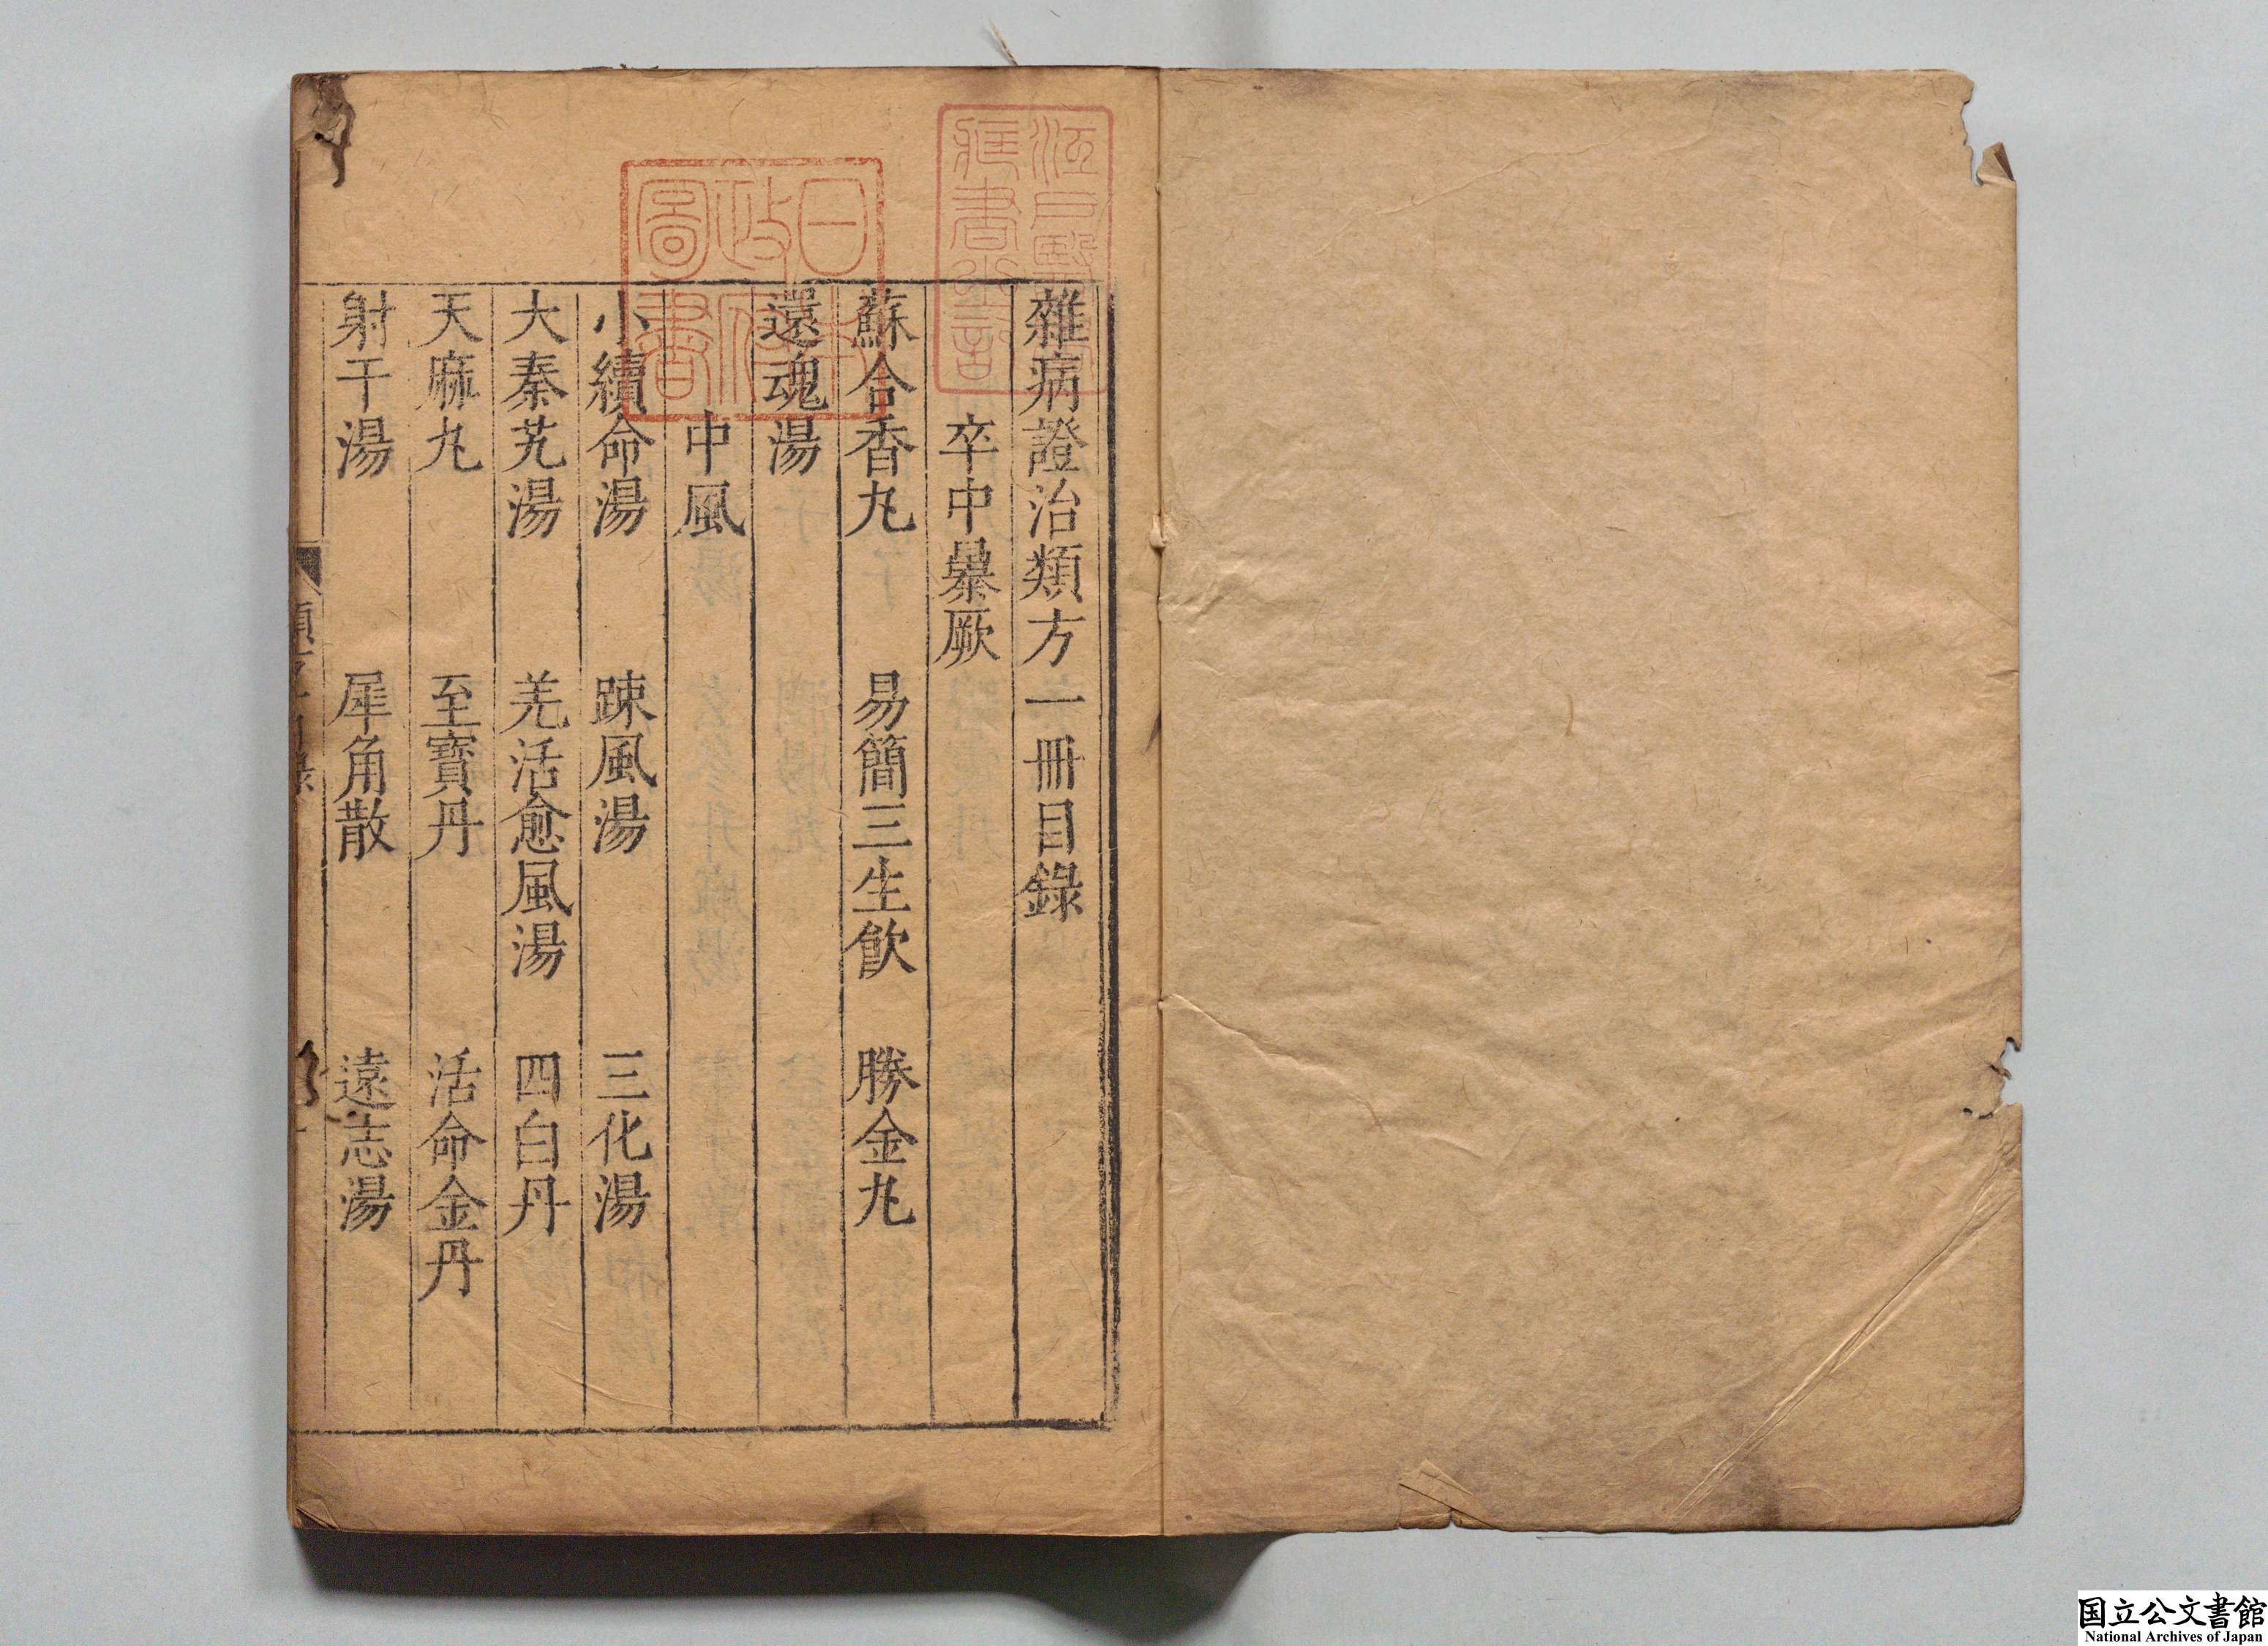 雜病證治類方一冊目錄
卒中暴厥
蘇合香丸 易簡三生飲 勝金丸
還魂湯
中風
小續命湯 踈風湯 三化湯
大秦艽湯 羌活愈風湯 四白丹
天麻丸 至寶丹 活命金丹
射干湯 犀角散 遠志湯
日本政府圖書
国立公文書館
National Archives of Japan